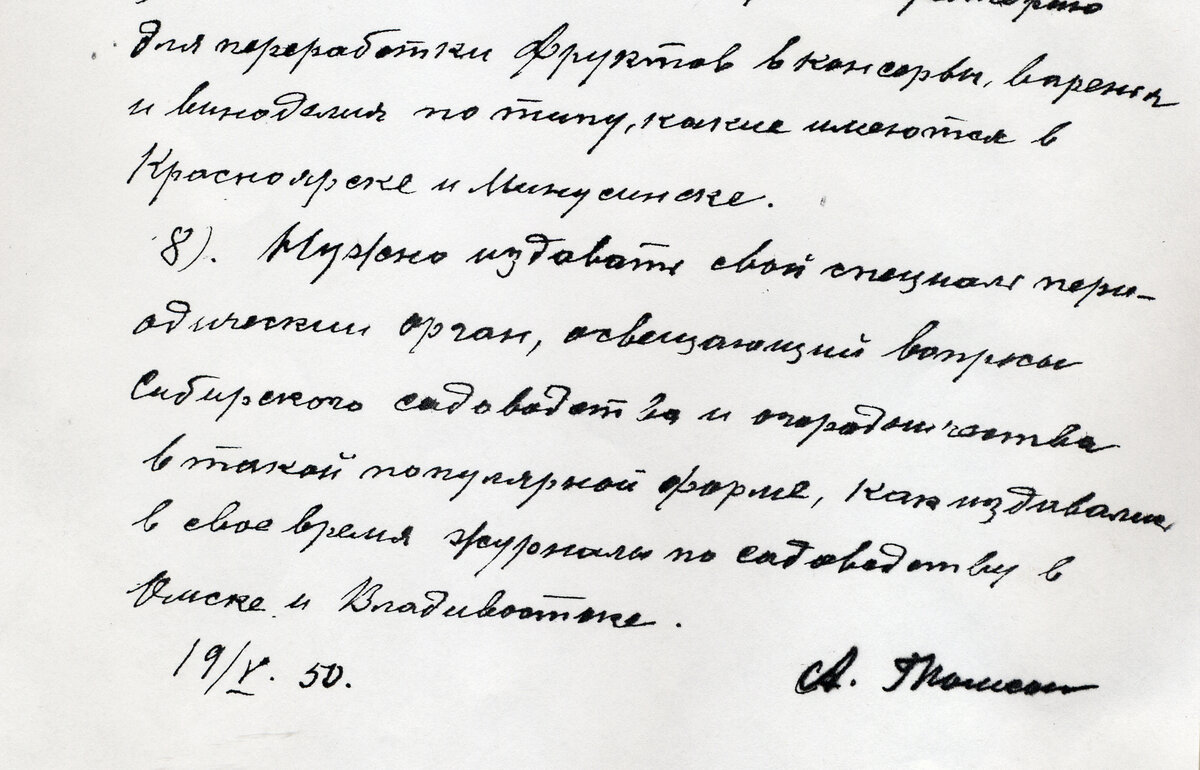 для переработки фруктов в консервы, варенья
и виноделия по типу, какие имеются в
Красноярске и Минусинске.
8). Нужно издавать свой специаль пери-
одический орган, освещающий вопросы
Сибирского садоводства и огородничества
в такой популярной форме, как издавались
в свое время журналы по садоводству в
Омске и Владивостоке.
19/V. 50.
А. Томсон